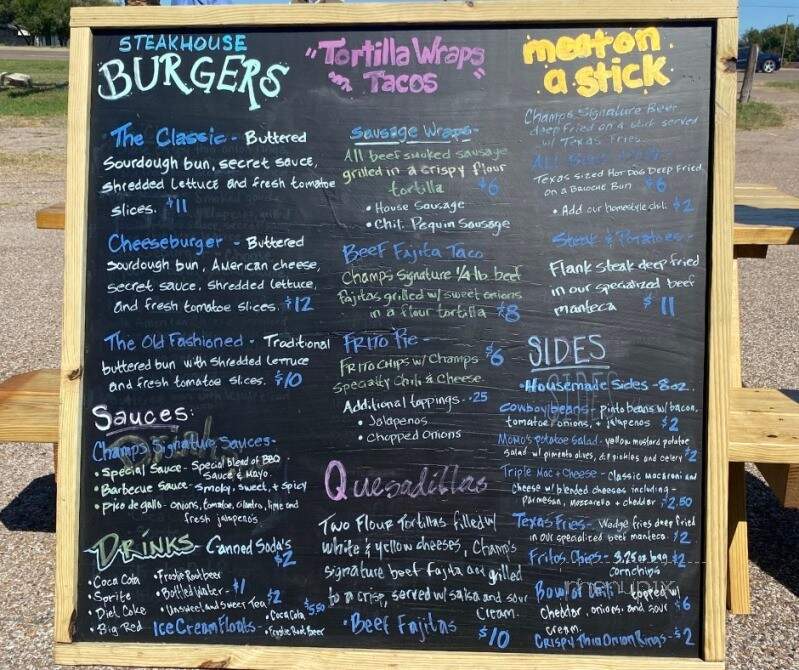 STEAKHOUSE
BURGERS
The Classic - Buttered
Sourdough bun, secret sauce,
shredded lettuce and fresh tomatoe
slices. $11
Cheeseburger - Buttered
sourdough bun, American cheese,
secret sauce, shredded lettuce,
and fresh tomatoe slices. $12
The Old Fashioned - Traditional
buttered bun with shredded lettuce
and fresh tomatoe slices. $10
Sauces:
Champs Signature Sauces-
• Special Sauce - Special blend of BBQ
Sauce & Mayo
• Barbecue Sauce - Smoky, sweet, & spicy
• Pico de gallo - onions, tomatoe, cilantro, lime and
fresh jalapeños
DRINKS - Canned Soda's
$2
• Coca Cola
• Sprite
• Diet Coke
• Big Red
• Frostie Root beer
• Bottled Water - $1
• Unsweet and Sweet Tea $2
Ice Cream Floats - • Coca Cola $5.50
• Frostie Root Beer
"Tortilla Wraps
Tacos"
Sausage Wraps-
All beef smoked sausage
grilled in a crispy flour
tortilla $6
• House Sausage
• Chili Pequin Sausage
Beef Fajita Taco
Champs Signature 1/4 lb. beef
Fajitas grilled w/ sweet onions
in a flour tortilla $8
Frito Pie -
Frito Chips w/ Champs $6
Specialty Chili & Cheese
Additional toppings - .25
• Jalapenos
• Chopped Onions
Quesadillas
Two Flour Tortillas filled w/
white & yellow cheeses, Champ's
signature beef fajita and grilled
to a crisp, served w/ salsa and sour
cream.
• Beef Fajitas $10
meat on
a stick
Champs Signature Beer
deep fried on a stick served
w/ Texas Fries
All Beef
Texas sized Hot Dog Deep Fried
on a Brioche Bun $6
• Add our homestyle chili $2
Steak & Potatoes -
Flank steak deep fried
in our specialized beef
manteca $11
SIDES
• Housemade Sides - 8oz.
Cowboy beans - pinto beans w/ bacon,
tomatoe, onions, & jalapenos $2
Momo's potatoe Salad - yellow mustard potatoe
salad w/ pimento olives, dill pickles and celery $2
Triple Mac & Cheese - Classic macaroni and
cheese w/ blended cheeses including -
parmesan, mozzarella & cheddar $2.50
Texas Fries - Wedge fries deep fried
in our specialized beef manteca $2
Fritos Chips - 9.25oz bag $2
corn chips
Bowl of Chili - topped w/
cheddar, onions, and sour $6
cream
Crispy Thin Onion Rings - $2
menupix